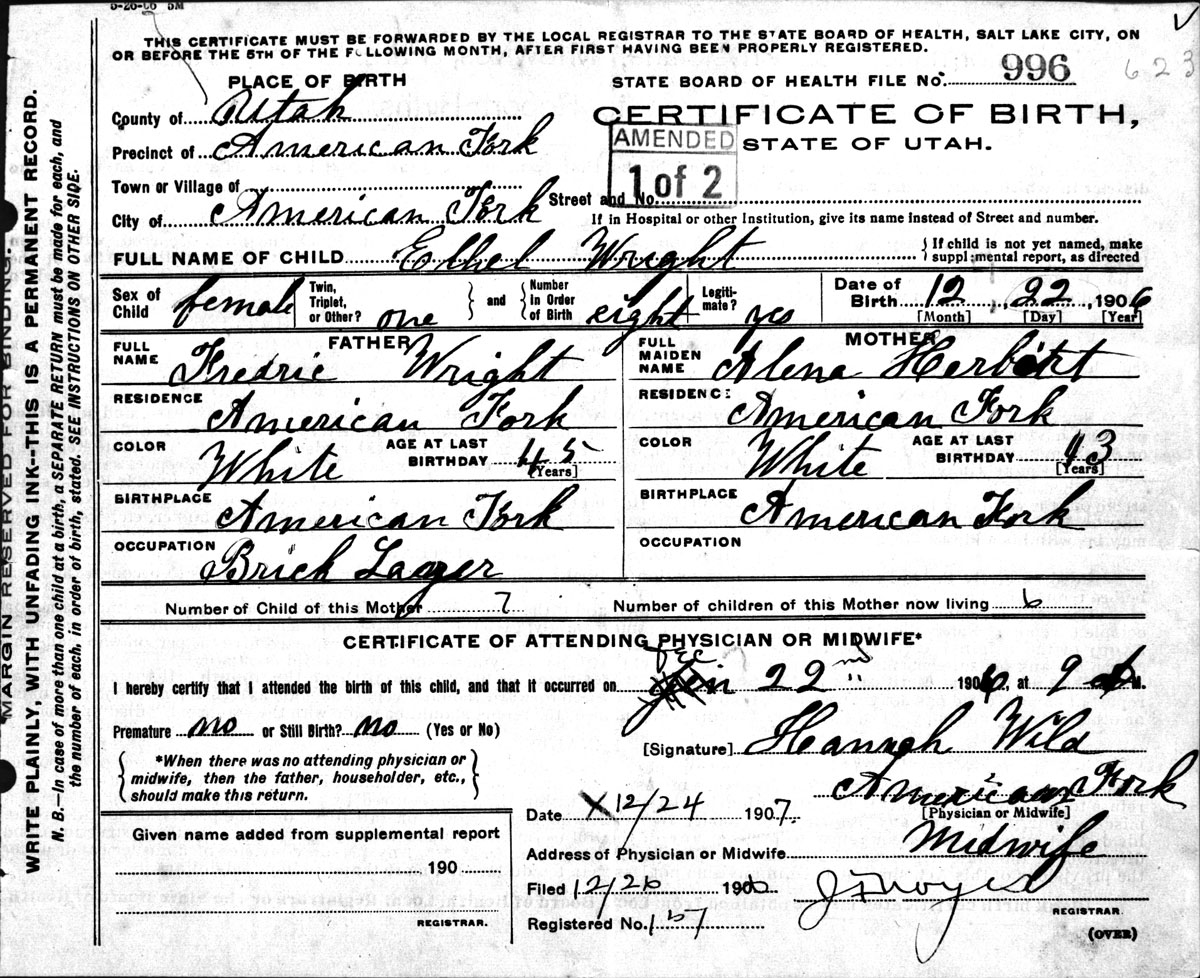 5-26-06 5M
THIS CERTIFICATE MUST BE FORWARDED BY THE LOCAL REGISTRAR TO THE STATE BOARD OF HEALTH, SALT LAKE CITY, ON
OR BEFORE THE 5TH OF THE FOLLOWING MONTH, AFTER FIRST HAVING BEEN PROPERLY REGISTERED.
PLACE OF BIRTH
STATE BOARD OF HEALTH FILE No. 996 623
County of Utah
CERTIFICATE OF BIRTH,
Precinct of American Fork
AMENDED
STATE OF UTAH.
1 of 2
Town or Village of
Street and No.
City of American Fork
If in Hospital or other Institution, give its name instead of Street and number.
FULL NAME OF CHILD Ethel Wright
If child is not yet named, make
supplemental report, as directed
Sex of Child female
Twin, Triplet, or Other? one
and
Number in Order of Birth eight
Legiti-mate? yes
Date of Birth 12, 22, 1906
[Month] [Day] [Year]
FATHER
FULL NAME Fredric Wright
RESIDENCE American Fork
COLOR White AGE AT LAST BIRTHDAY 45
[Years]
BIRTHPLACE American Fork
OCCUPATION Brick Layer
MOTHER
FULL MAIDEN NAME Alena Herbert
RESIDENCE American Fork
COLOR White AGE AT LAST BIRTHDAY 43
[Years]
BIRTHPLACE American Fork
OCCUPATION
Number of Child of this Mother 7 Number of children of this Mother now living 6
CERTIFICATE OF ATTENDING PHYSICIAN OR MIDWIFE*
I hereby certify that I attended the birth of this child, and that it occurred on Dec 22nd 1906, at 9 M.
Premature no or Still Birth? no (Yes or No)
[Signature] Hannah Wild
*When there was no attending physician or
midwife, then the father, householder, etc.,
should make this return.
American Fork
[Physician or Midwife]
Date X 12/24 1907.
Address of Physician or Midwife Midwife
Given name added from supplemental report
190
REGISTRAR.
Filed 12/26 190
REGISTRAR.
Registered No. 157
(OVER)
MARGIN RESERVED FOR BINDING.
WRITE PLAINLY, WITH UNFADING INK--THIS IS A PERMANENT RECORD.
N. B.—In case of more than one child at a birth, a SEPARATE RETURN must be made for each, and
the number of each, in order of birth, stated. SEE INSTRUCTIONS ON OTHER SIDE.